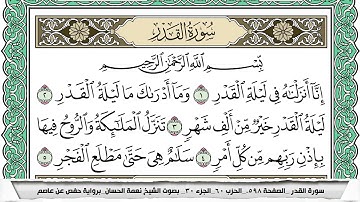 سُورَةُ الْقَدْرِ
بِسْمِ اللَّهِ الرَّحْمَٰنِ الرَّحِيمِ
إِنَّا أَنزَلْنَاهُ فِي لَيْلَةِ الْقَدْرِ ١ وَمَا أَدْرَاكَ مَا لَيْلَةُ الْقَدْرِ ٢
لَيْلَةُ الْقَدْرِ خَيْرٌ مِّنْ أَلْفِ شَهْرٍ ٣ تَنَزَّلُ الْمَلَائِكَةُ وَالرُّوحُ فِيهَا
بِإِذْنِ رَبِّهِم مِّن كُلِّ أَمْرٍ ٤ سَلَامٌ هِيَ حَتَّىٰ مَطْلَعِ الْفَجْرِ ٥
سورة القدر _ الصفحة ٥٩٨ _ الحزب ٦٠ _ الجزء ٣٠ _ بصوت الشيخ نعمة الحسان _ برواية حفص عن عاصم